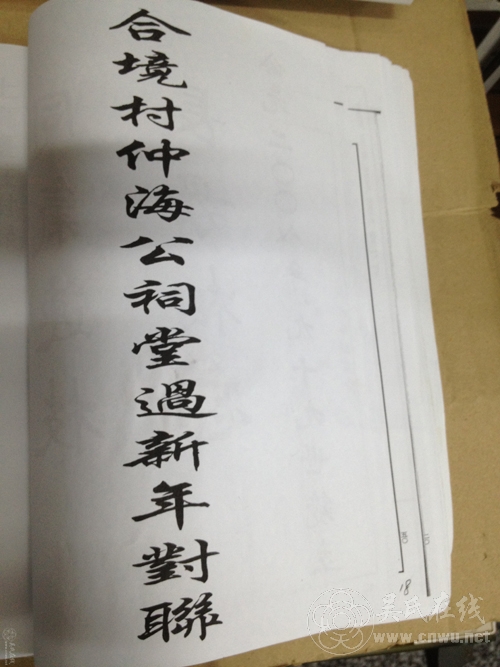 合境村仲海公祠堂過新年對聯
18
吴氏在线
www.cnwu.net